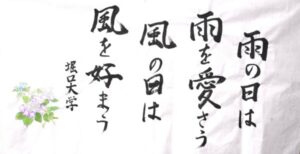 雨の日は
雨を愛さう
風の日は
風を好まう
堀口大学